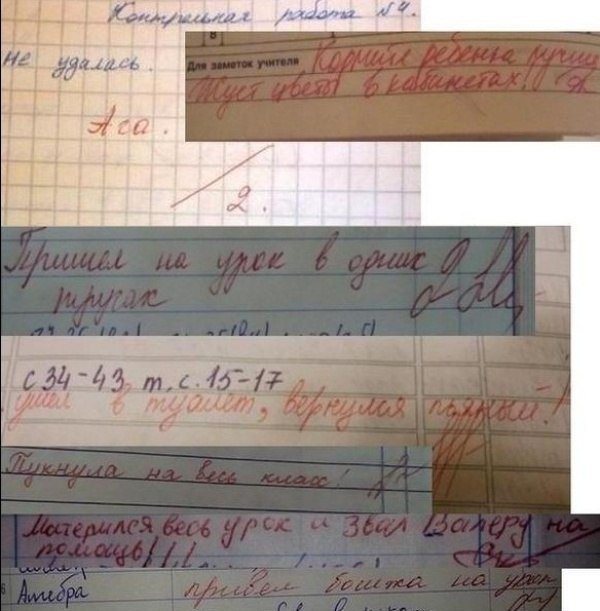 Контрольная работа №4.
Не удалась.
Ага.
2.
8
Для заметок учителя Кормите ребёнка лучше
Жуёт цветы в кабинетах!
Пришёл на урок в одних
трусах
с 34-43 т. с. 15-17
ушёл в туалет, вернулся пьяный!
Пукнула на весь класс!
Матерился весь урок и звал Валеру на
помощь!!!
6 Алгебра привёл бомжа на урок